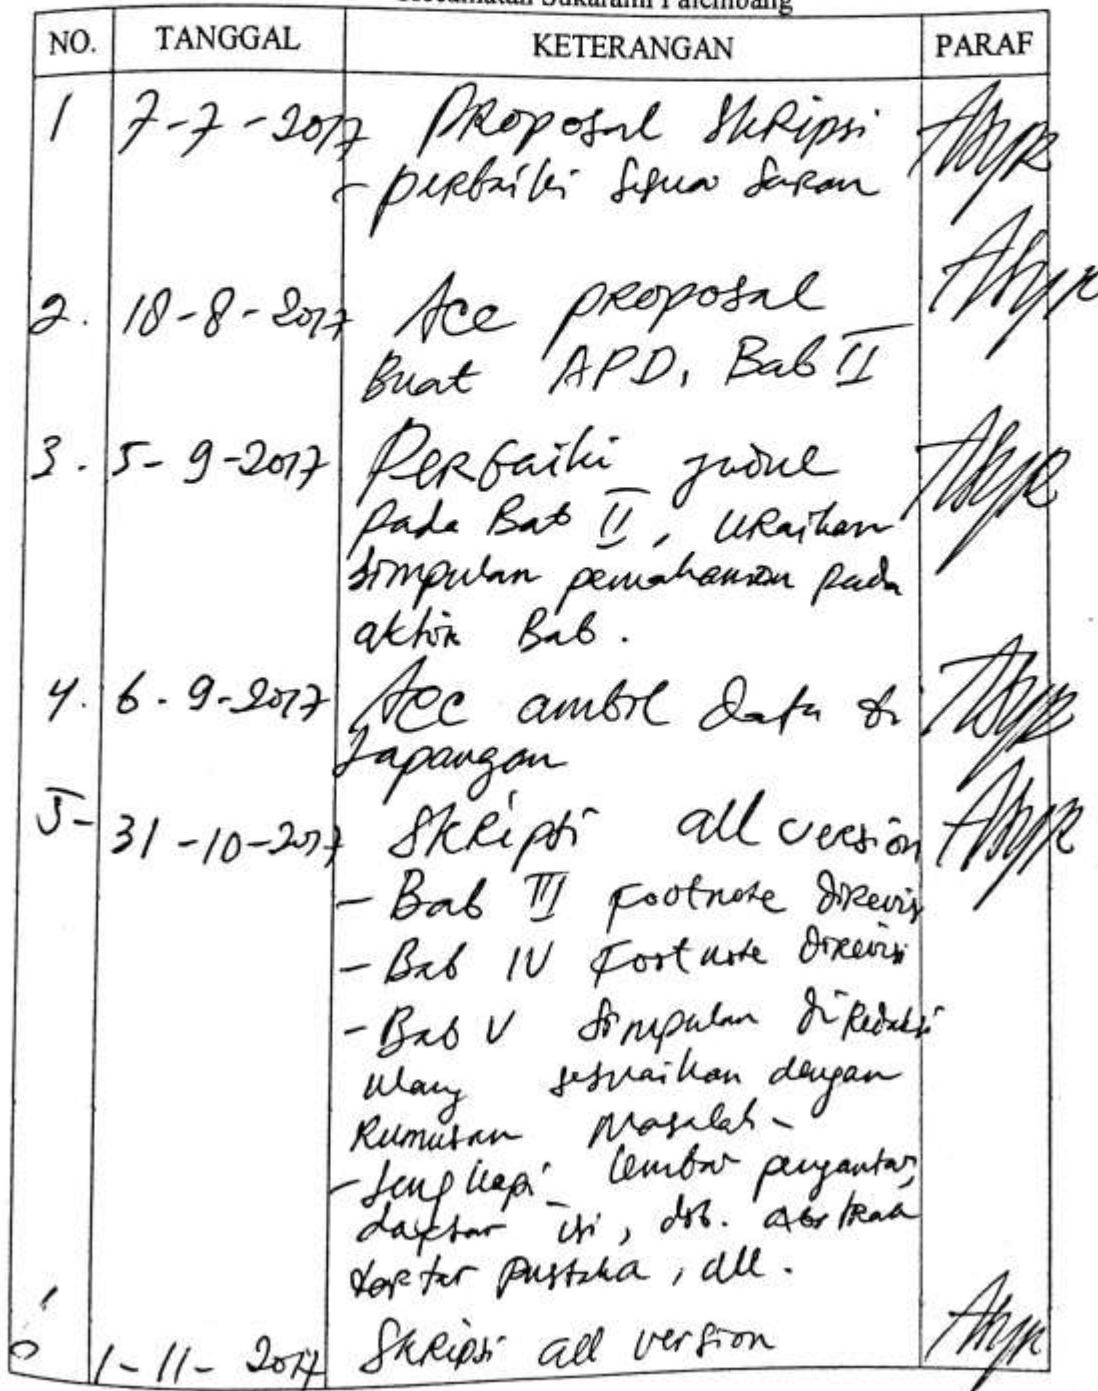 Kecamatan Sukarami Palembang
NO. TANGGAL KETERANGAN PARAF
1 7-7-2017 Proposal Skripsi
- perbaiki sesuai saran
2. 18-8-2017 Acc proposal
Buat APD, Bab II
3. 5-9-2017 Perbaiki judul
pada Bab II, uraikan
simpulan pemahaman pada
akhir Bab.
4. 6-9-2017 Acc ambil data di
lapangan
5- 31-10-2017 Skripsi all version
- Bab III Footnote direvisi
- Bab IV Footnote direvisi
- Bab V Simpulan diredaksi
ulang sesuaikan dengan
Rumusan Masalah-
- Lengkapi lembar pengantar,
daftar isi, dsb. abstrak
daftar pustaka, dll.
1-11-2017 Skripsi all version